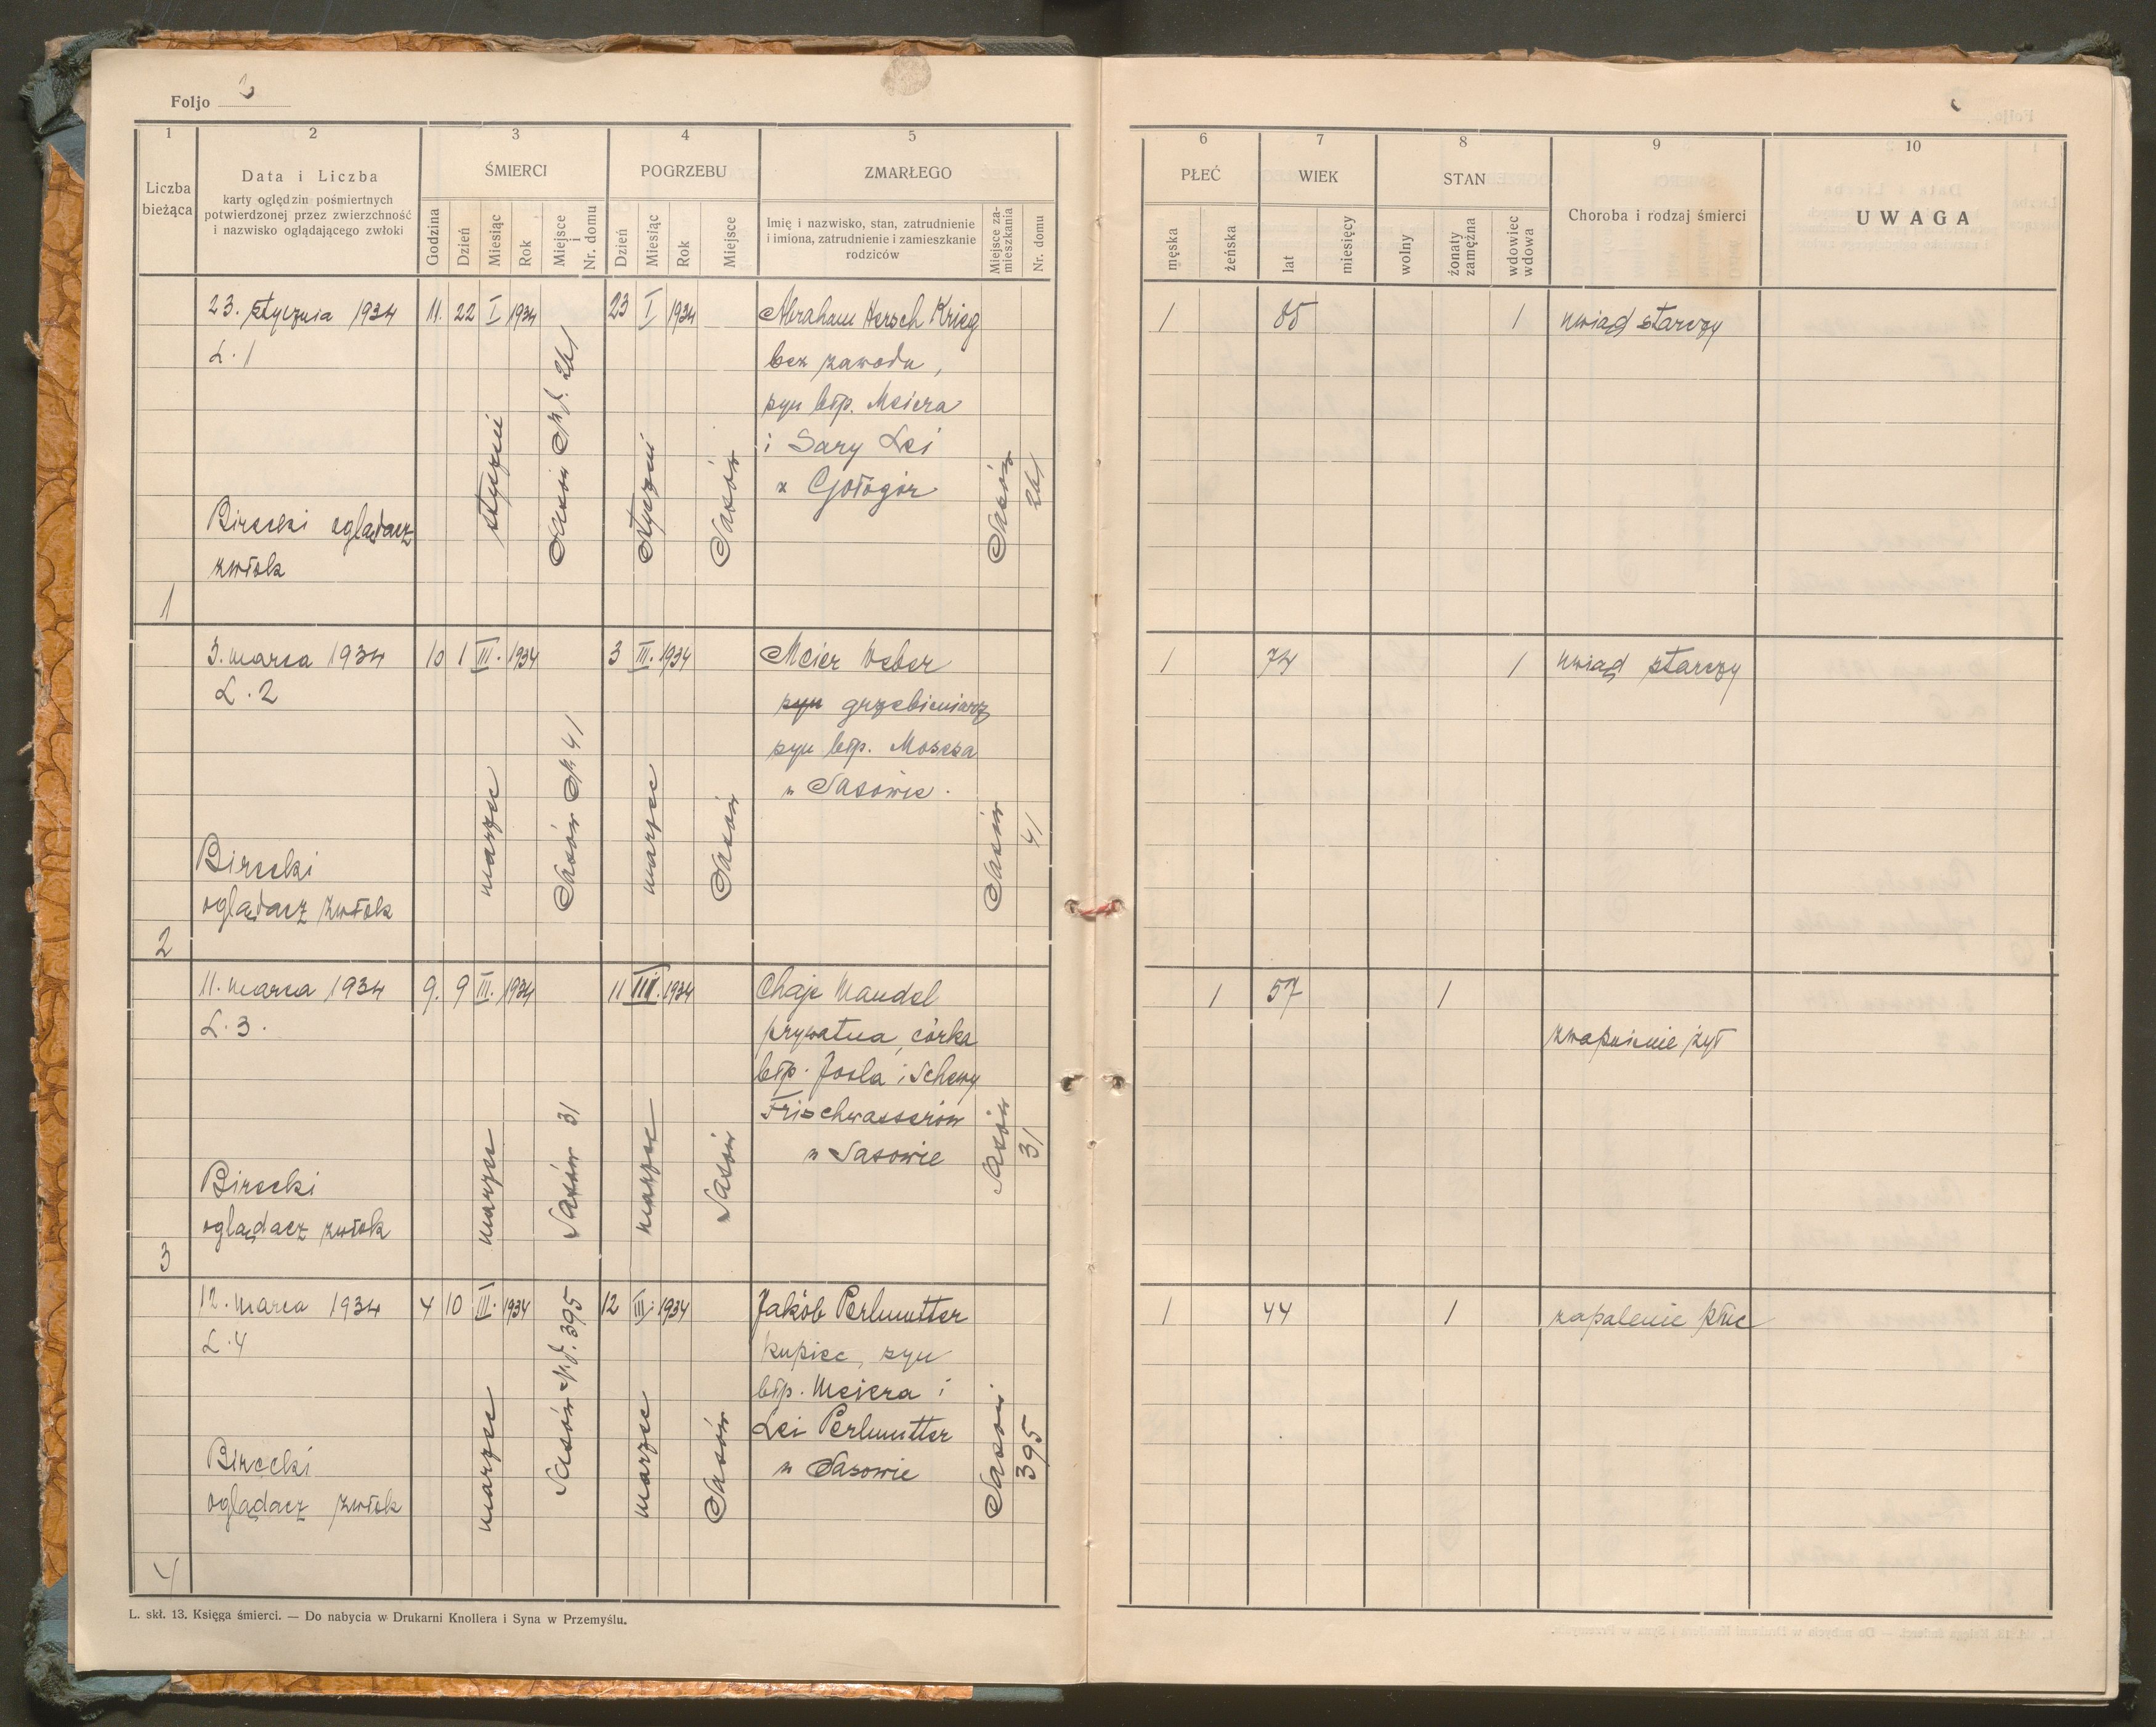 Foljo
1 2 3 4 5
Liczba bieżąca
Data i Liczba
karty oględzin pośmiertnych
potwierdzonej przez zwierzchność
i nazwisko oglądającego zwłoki
ŚMIERCI
Godzina
Dzień
Miesiąc
Rok
Miejsce i Nr. domu
POGRZEBU
Dzień
Miesiąc
Rok
Miejsce
ZMARŁEGO
Imię i nazwisko, stan, zatrudnienie
i imiona, zatrudnienie i zamieszkanie
rodziców
Miejsce zamieszkania
Nr. domu
6 7 8 9 10
PŁEĆ
męska
żeńska
WIEK
lat
miesięcy
STAN
wolny
żonaty zamężna
wdowiec wdowa
Choroba i rodzaj śmierci
UWAGA
1
23. stycznia 1934
L. 1
Birecki oglądacz
zwłok
11. 22 I 1934
styczeń
Sasów Nr. d. 261
23 I 1934
styczeń
Sasów
Abraham Hersch Krieg
bez zawodu,
syn błp. Meiera
i Sary Lei
z Gołogór
Sasów
261
1 85 1 uwiąd starczy
2
3. marca 1934
L. 2
Birecki
oglądacz zwłok
10 1 III. 1934
marzec
Sasów Nr 41
3 III. 1934
marzec
Sasów
Meier Weber
syn grzebieniarz
syn błp. Moszesa
w Sasowie.
Sasów
41
1 74 1 uwiąd starczy
3
11. marca 1934
L. 3.
Birecki
oglądacz zwłok
9. 9 III. 1934
marzec
Sasów 31
11 III. 1934
marzec
Sasów
Chaje Mandel
prywatna, córka
błp. Josla i Schewy
Frischwasserów
w Sasowie
Sasów
31
1 57 1
zwapnienie żył
4
12. marca 1934
L. 4
Birecki
oglądacz zwłok
4 10 III. 1934
marzec
Sasów Nr. d. 395
12 III. 1934
marzec
Sasów
Jakób Perlmutter
kupiec, syn
błp. Meiera i
Lei Perlmutter
w Sasowie
Sasów
395
1 44 1 zapalenie płuc
L. skł. 13. Księga śmierci. — Do nabycia w Drukarni Knollera i Syna w Przemyślu.